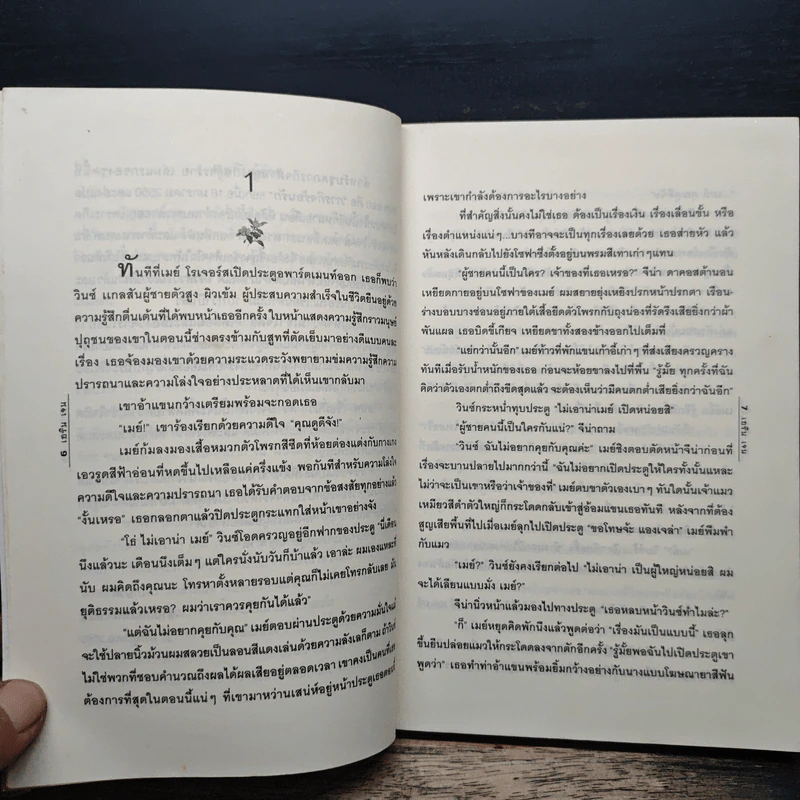 1
ทันทีที่เมย์ โรเจอร์สเปิดประตูอพาร์ตเมนท์ออก เธอก็พบว่า
วินซ์ แกลสันผู้ชายตัวสูง ผิวเข้ม ผู้ประสบความสำเร็จในชีวิตยืนอยู่ด้วย
ความรู้สึกตื่นเต้นที่ได้พบหน้าเธออีกครั้ง ใบหน้าแสดงความรู้สึกราวมนุษย์
ปุถุชนของเขาในตอนนี้ช่างตรงข้ามกับสูทที่ตัดเย็บมาอย่างดีแบบคนละ
เรื่อง เธอจ้องมองเขาด้วยความระแวดระวังพยายามข่มความรู้สึกความ
ปรารถนาและความโล่งใจอย่างประหลาดที่ได้เห็นเขากลับมา
เขาอ้าแขนกว้างเตรียมพร้อมจะกอดเธอ
"เมย์!" เขาร้องเรียกด้วยความดีใจ "คุณดูดีจัง!"
เมย์ก้มลงมองเสื้อหมวกตัวโพรกสีซีดที่ห้อยต่องแต่งกับกางเกง
เอวรูดสีฟ้าอ่อนที่หดขึ้นไปเหลือแค่ครึ่งแข้ง พอกันทีสำหรับความโล่งใจ
ความดีใจและความปรารถนา เธอได้รับคำตอบจากข้อสงสัยทุกอย่างแล้ว
"งั้นเหรอ" เธอกลอกตาแล้วปิดประตูกระแทกใส่หน้าเขาอย่างจัง
"โธ่ ไม่เอาน่า เมย์" วินซ์โอดครวญอยู่อีกฟากของประตู "นี่เดือน
นึงแล้วนะ เดือนนึงเต็มๆ แต่ใครนั่งนับวันก็บ้าแล้ว เอาล่ะ ผมเองแหละที่
นับ ผมคิดถึงคุณนะ โทรหาตั้งหลายรอบแต่คุณก็ไม่เคยโทรกลับเลย มัน
ยุติธรรมแล้วเหรอ? ผมว่าเราควรคุยกันได้แล้ว"
"แต่ฉันไม่อยากคุยกับคุณ" เมย์ตอบผ่านประตูด้วยความมั่นใจแม้
จะใช้ปลายนิ้วม้วนผมสลวยเป็นลอนสีแดงเล่นด้วยความลังเลก็ตาม ถ้าวินซ์
ไม่ใช่พวกที่ชอบคำนวณถึงผลได้ผลเสียอยู่ตลอดเวลา เขาคงเป็นคนที่เธอ
ต้องการที่สุดในตอนนี้แน่ๆ ที่เขามาหว่านเสน่ห์อยู่หน้าประตูเธอตอนนี้
6
เพราะเขากำลังต้องการอะไรบางอย่าง
ที่สำคัญสิ่งนั้นคงไม่ใช่เธอ ต้องเป็นเรื่องเงิน เรื่องเลื่อนขั้น หรือ
เรื่องตำแหน่งแน่ๆ...บางทีอาจจะเป็นทุกเรื่องเลยด้วย เธอส่ายหัว แล้ว
หันหลังเดินกลับไปยังโซฟาซึ่งตั้งอยู่บนพรมสีเทาเก่าๆแทน
"ผู้ชายคนนี้เป็นใคร? เจ้าของที่เธอเหรอ?" จีน่า ดาคอสต้านอน
เหยียดกายอยู่บนโซฟาของเมย์ ผมสยายยุ่งเหยิงปรกหน้าปรกตา เรือน-
ร่างบอบบางซ่อนอยู่ภายใต้เสื้อยืดตัวโพรกกับถุงน่องที่รัดรึงเสียยิ่งกว่าผ้า
พันแผล เธอบิดขี้เกียจ เหยียดขาทั้งสองข้างออกไปเต็มที่
"แย่กว่านั้นอีก" เมย์ท้าวที่พักแขนเก้าอี้เก่าๆ ที่ส่งเสียงครวญคราง
ทันทีเมื่อรับน้ำหนักของเธอ ก่อนจะห้อยขาลงไปที่พื้น "รู้มั้ย ทุกครั้งที่ฉัน
คิดว่าตัวเองตกต่ำถึงขีดสุดแล้ว จะต้องเห็นว่ามีคนตกต่ำเสียยิ่งกว่าฉันอีก"
วินซ์กระหน่ำทุบประตู "ไม่เอาน่าเมย์ เปิดหน่อยสิ"
"ผู้ชายคนนี้เป็นใครกันแน่?" จีน่าถาม
"วินซ์ ฉันไม่อยากคุยกับคุณค่ะ" เมย์ชิงตอบตัดหน้าจีน่าก่อนที่
เรื่องจะบานปลายไปมากกว่านี้ "ฉันไม่อยากเปิดประตูให้ใครทั้งนั้นแหละ
ไม่ว่าจะเป็นเขาหรือว่าเจ้าของที่" เมย์ตบขาตัวเองเบาๆ ทันใดนั้นเจ้าแมว
เหมียวสีดำตัวใหญ่ก็กระโดดกลับเข้าสู่อ้อมแขนเธอทันที หลังจากที่ต้อง
สูญเสียพื้นที่ไปเมื่อเมย์ลุกไปเปิดประตู "ขอโทษจ้ะ แองเจล่า" เมย์พึมพำ
กับแมว
"เมย์?" วินซ์ยังคงเรียกต่อไป "ไม่เอาน่า เป็นผู้ใหญ่หน่อยสิ ผม
จะได้เลียนแบบมั่ง เมย์?"
จีน่านิ่วหน้าแล้วมองไปทางประตู "เธอหลบหน้าวินซ์ทำไมล่ะ?"
"ก็" เมย์หยุดคิดพักนึงแล้วพูดต่อว่า "เรื่องมันเป็นแบบนี้" เธอลุก
ขึ้นยืนปล่อยแมวให้กระโดดลงจากตักอีกครั้ง "รู้มั้ยพอฉันไปเปิดประตูเขา
พูดว่า" เธอทำท่าอ้าแขนพร้อมยิ้มกว้างอย่างกับนางแบบโฆษณายาสีฟัน
7